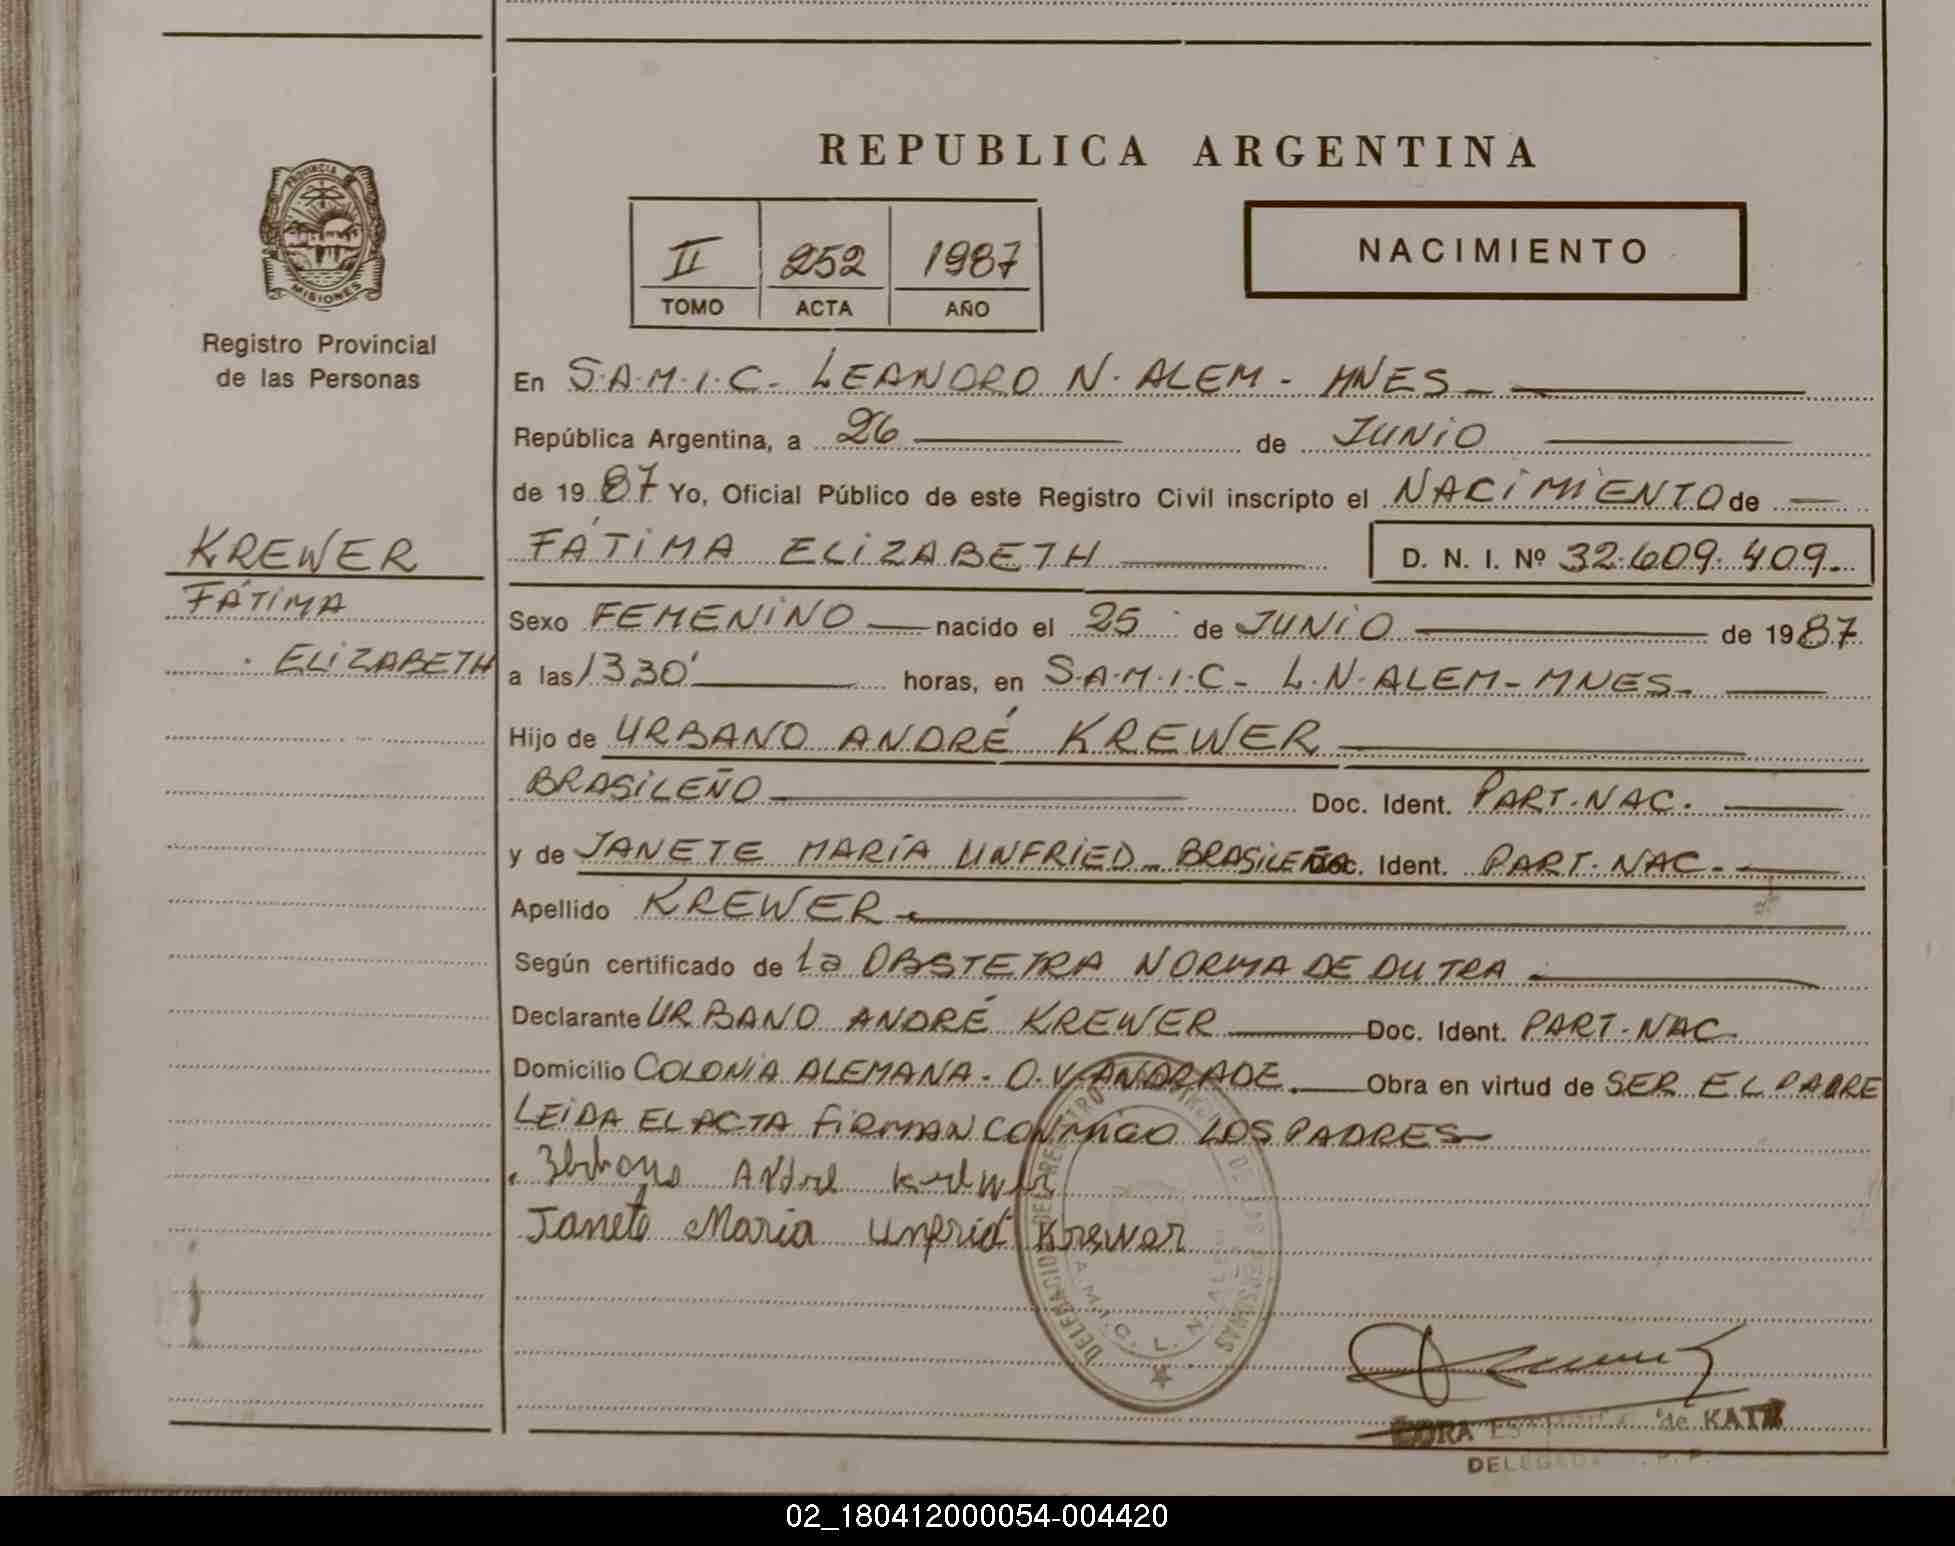 REPUBLICA ARGENTINA
PROVINCIA DE
MISIONES
Registro Provincial
de las Personas
II 252 1987
TOMO ACTA AÑO
NACIMIENTO
En S.A.M.I.C- LEANDRO N. ALEM - MNES-
República Argentina, a 26 de JUNiO
de 19 87 Yo, Oficial Público de este Registro Civil inscripto el NACiMiENTO de
FÁTiMA ELiZABETH D. N. I. Nº 32.609.409.
KREWER
FÁTiMA
ELiZABETH
Sexo FEMENiNO nacido el 25 de JUNiO de 19 87
a las 13,30' horas, en S.A.M.I.C- L.N.ALEM-MNES-
Hijo de URBANO ANDRÉ KREWER
BRASiLEÑO Doc. Ident. PART.NAC.
y de JANETE MARÍA UNFRIED- BRASiLEÑA Doc. Ident. PART. NAC-
Apellido KREWER
Según certificado de la OBSTETRA NORMA DE DUTRA
Declarante URBANO ANDRÉ KREWER Doc. Ident. PART.NAC.
Domicilio COLONiA ALEMANA- O.V.ANDRADE. Obra en virtud de SER EL PADRE
LEiDA EL ACTA FiRMAN CONMiGO LOS PADRES
André Krewer
Janete Maria Unfrid Krewer
DELEGACION DEL REGISTRO PROVINCIAL DE LAS PERSONAS
S.A.M.I.C. L. N. ALEM
de KATZ
02_180412000054-004420